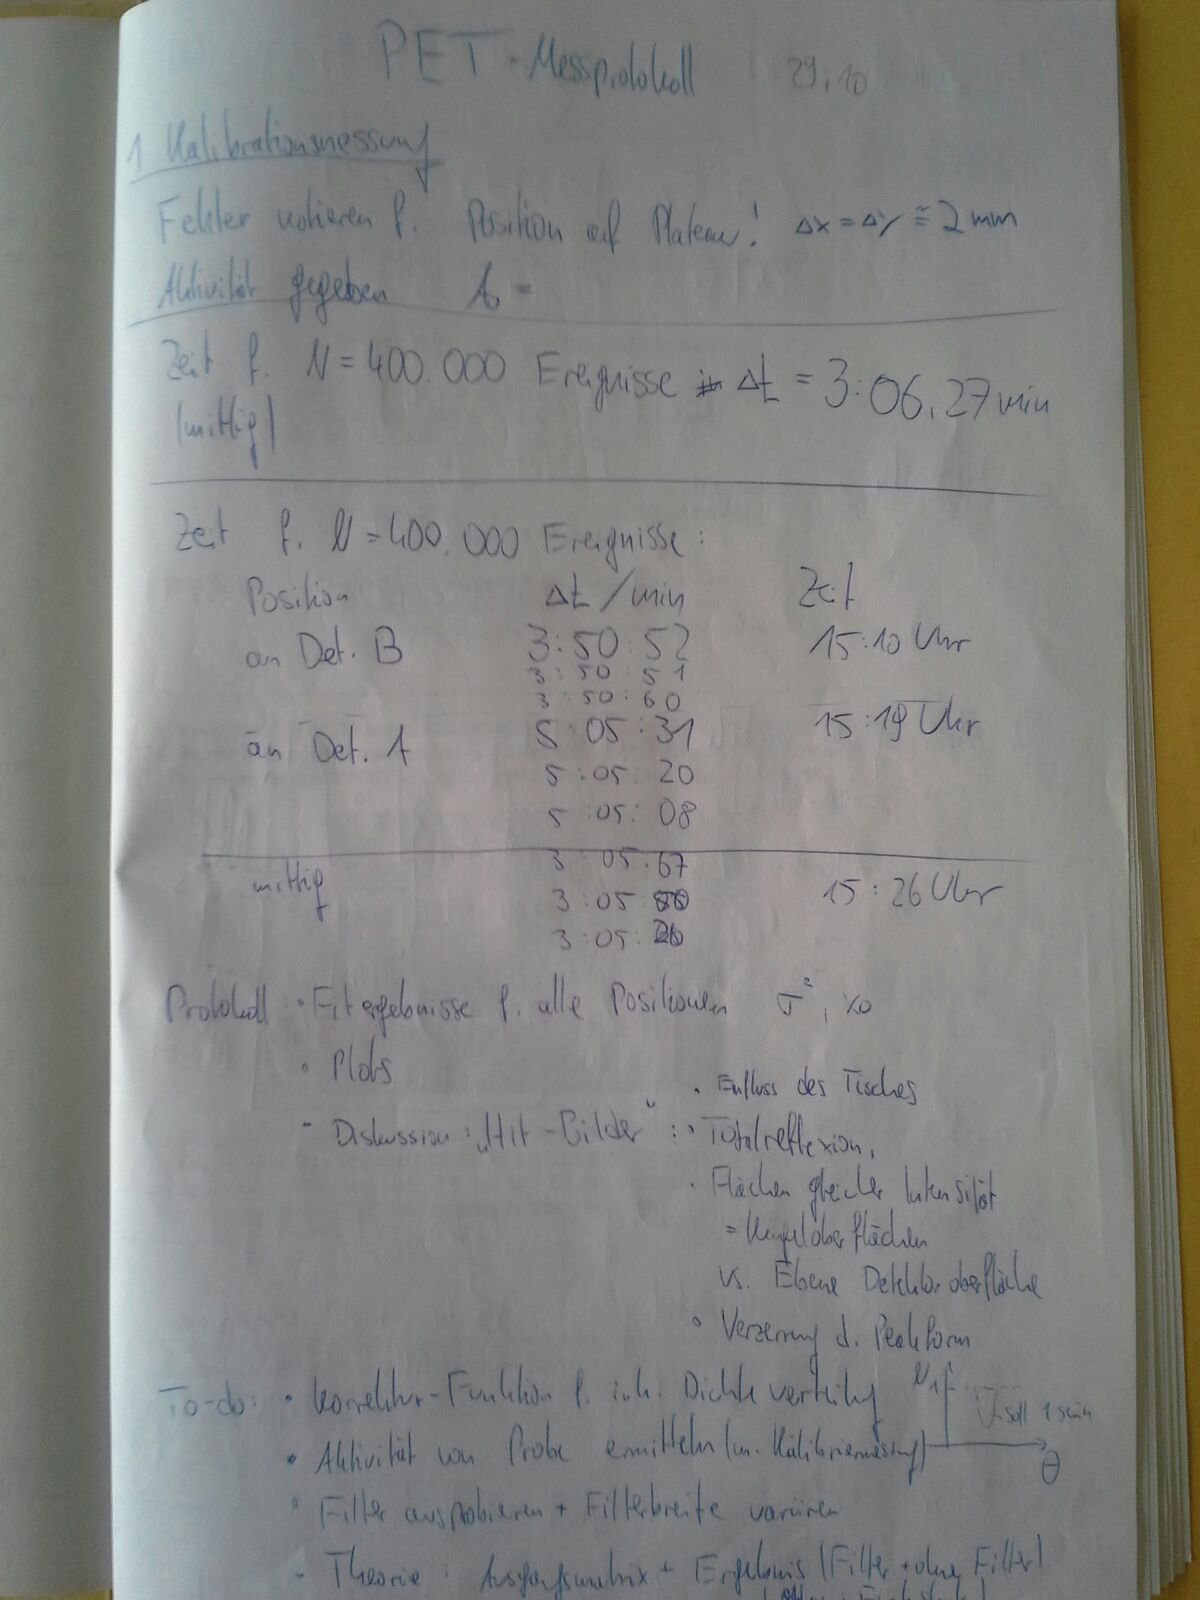 PET - Messprotokoll 29.10
1 Kalibrationsmessung
Fehler notieren f. Position auf Plateau! Δx = Δy ≅ 2 mm
Aktivität gegeben A₀ =
Zeit f. N = 400.000 Ereignisse Δt = 3:06,27 min
(mittig)
Zeit f. N = 400.000 Ereignisse :
Position Δt / min Zeit
an Det. B 3:50:52 15:10 Uhr
3:50:51
3:50:60
an Det. A 5:05:31 15:19 Uhr
5:05:20
5:05:08
3:05.67
mittig 3:05 15:26 Uhr
3:05:
Protokoll : • Fitergebnisse f. alle Positionen σ², x₀
• Plots
• Einfluss des Tisches
- Diskussion : „Hit-Bilder" : • Totalreflexion,
• Flächen gleicher Intensität
= Kugeloberflächen
vs. Ebene Detektoroberfläche
• Verzerrung d. Peakform
To-do: • Korrektur-Funktion f. inh. Dichteverteilung N 1 soll 1 sein
• Aktivität von Probe ermitteln (m. Kalibriermessung) θ
• Filter ausprobieren + Filterbreite variieren
• Theorie : Ausgangsmatrix + Ergebnis (Filter + ohne Filter)